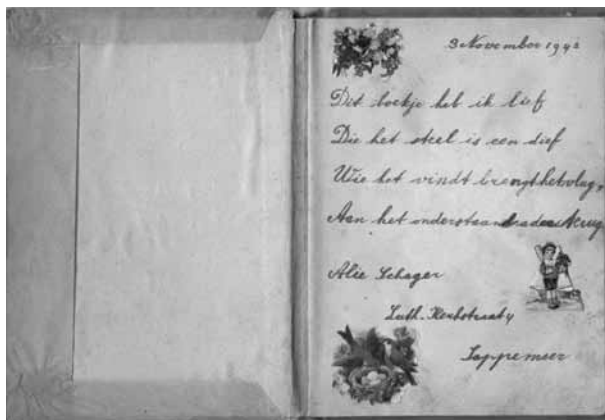 3 November 194
Dit boekje heb ik lief
Die het steel is een dief
Wie het vindt brengt het vlug,
Aan het onderstaande adres terug
Alie Schager
Luth. Kerkstraat 4
Sappemeer